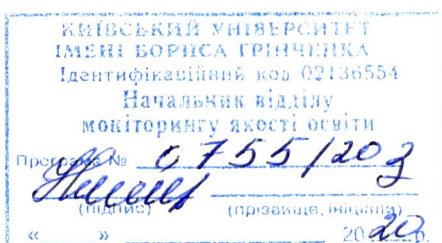 КИЇВСЬКИЙ УНІВЕРСИТЕТ
ІМЕНІ БОРИСА ГРІНЧЕНКА
Ідентифікаційний код 02136554
Начальник відділу
моніторингу якості освіти
Програма № 0755/20з
(підпис) (прізвище, ініціали)
« » 2020 р.